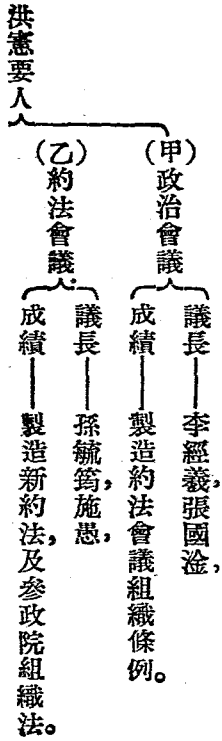 洪憲要人
(甲)政治會議
議長——李經羲,張國淦,
成績——製造約法會議組織條例。
(乙)約法會議.
議長——孫毓筠,施愚,
成績——製造新約法,及參政院組織法。